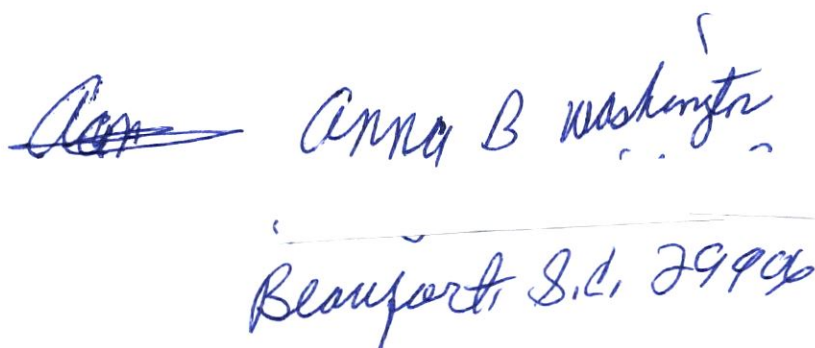 Anna B Washington
Beaufort, S.C. 29906